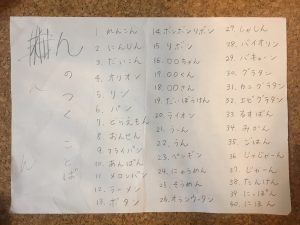 んのつくことば
ん
ん
1. れんこん
2. にんじん
3. だいこん
4. オリオン
5. リン
6. パン
7. どらえもん
8. おんせん
9. フライパン
10. あんぱん
11. メロンパン
12. ラーメン
13. ボタン
14. ポンポンリボン
15. リボン
16. ○○ちゃん
17. ○○くん
18. ○○さん
19. だいぼうけん
20. ライオン
21. うーん
22. うん
23. ペンギン
24. にゅうめん
25. そうめん
26. オランウータン
27. しゃしん
28. バイオリン
29. バキューン
30. グラタン
31. カニグラタン
32. エビグラタン
33. るすばん
34. みかん
35. ごはん
36. じゃじゃーん
37. じゃーん
38. たんけん
39. にっぽん
40. にほん